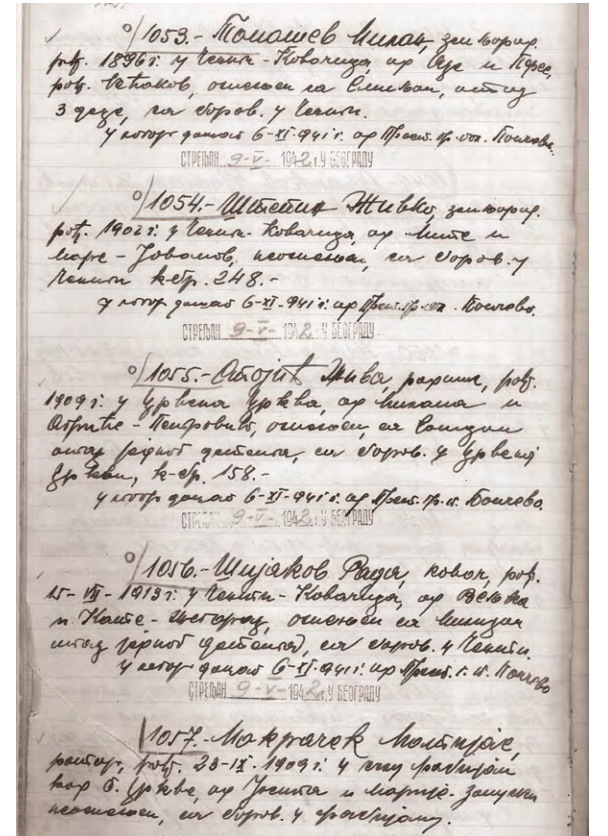 1053.- Томашев Милан, земљорад.
рођ. 1896 г. у Ченти - Ковачица, од Аце и Пере,
рођ. Ћећаков, ожењен са Емилијом, отац
3 деце, са боров. у Ченти.
у логор дошао 6-XI-941 г. од Прест. пр. ст. Панчево.
СТРЕЉАН 9-V- 1942 г. У БЕОГРАДУ
1054.- Штетин Живко, земљорад.
рођ. 1902 г. у Ченти - Ковачица, од Мите и
Маре - Јованов, неожењен, са боров. у
Ченти к.бр. 248.-
у логор дошао 6-XI-941 г. од Прест. пр. ст. Панчево.
СТРЕЉАН 9-V- 1942 г. У БЕОГРАДУ
1055.- Стојић Жива, радник, рођ.
1909 г. у Црвена Црква, од Милана и
- Петровић, ожењен са
отац једног детета, са боров. у Црвеној
Цркви, к.бр. 158.-
у логор дошао 6-XI-941 г. од Прест. пр. ст. Панчево.
СТРЕЉАН 9-V- 1942 г. У БЕОГРАДУ
1056.- Шијаков Рада, ковач, рођ.
15-VII-1913 г. у Ченти - Ковачица, од Вељка
и Кате - ожењен са
отац једног детета, са боров. у Ченти.
у логор дошао 6-XI-941 г. од Прест. г. ст. Панчево
СТРЕЉАН 9-V- 1942 г. У БЕОГРАДУ
1057.- Матијас,
ратар, рођ. 23-IX-1909 г. у
код Б. Цркве, од и Марије
неожењен, са боров. у